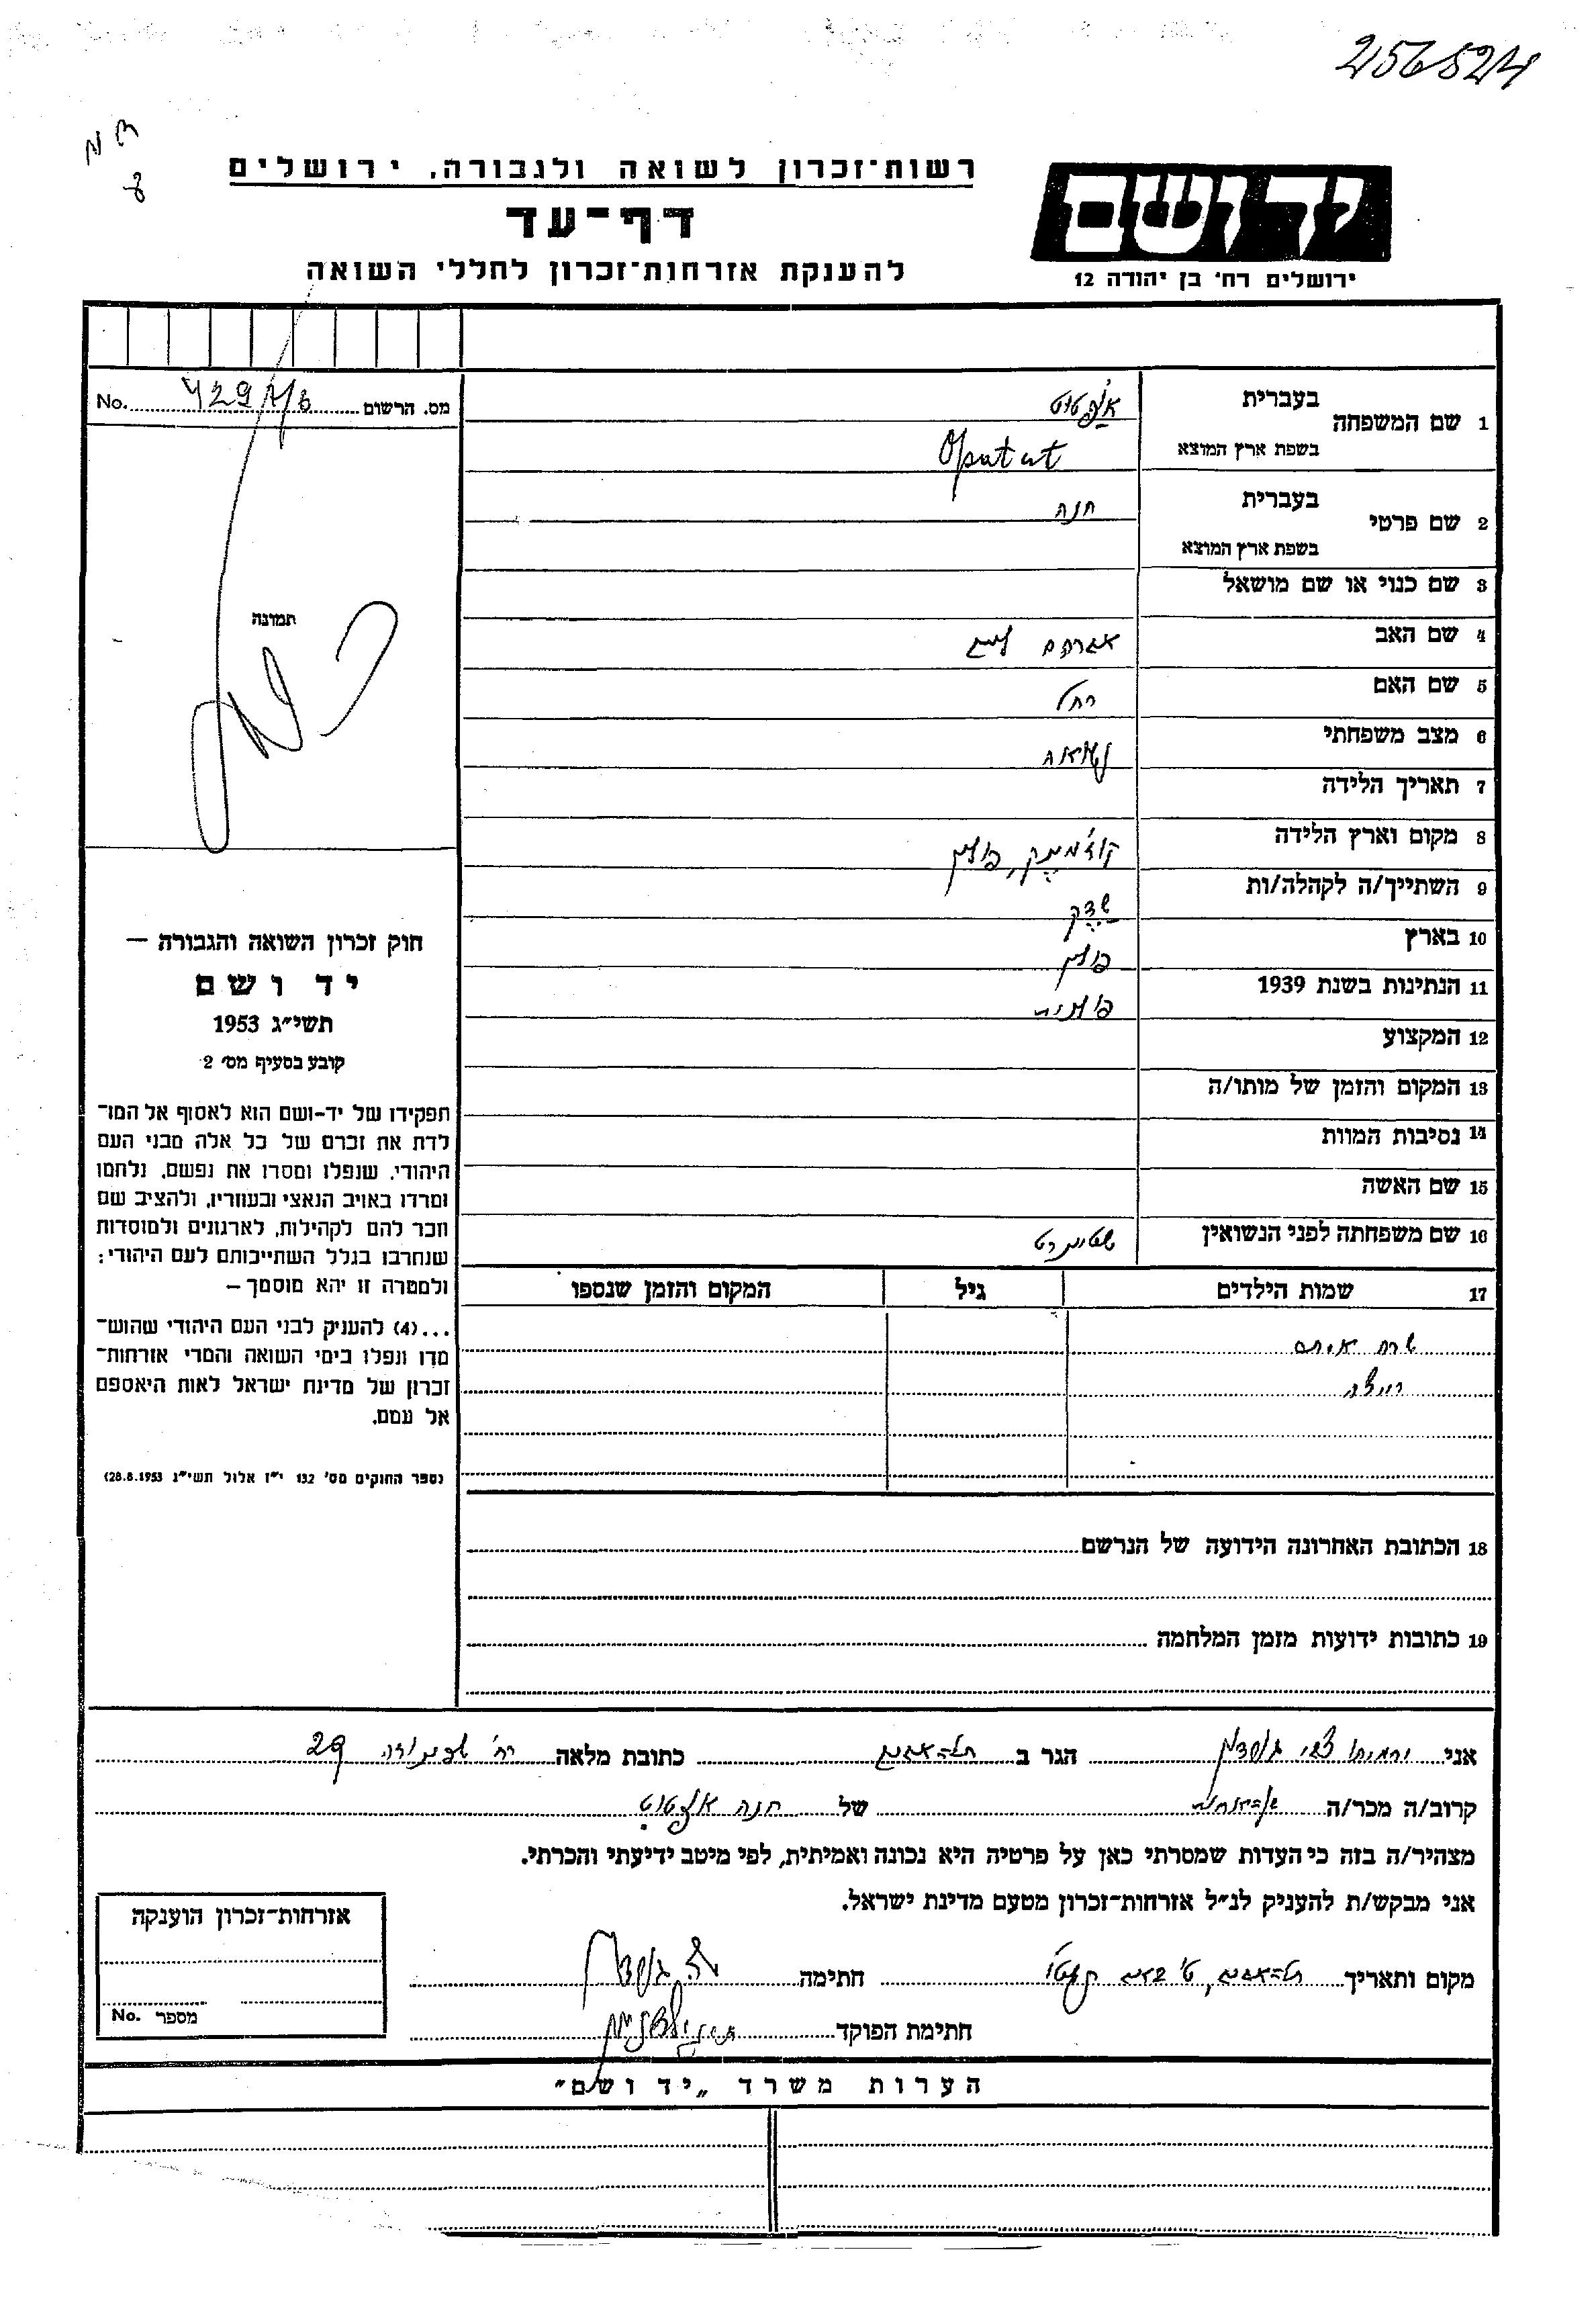 256524
רשות־זכרון לשואה ולגבורה, ירושלים
יד ושם
דף־עד
ירושלים רח' בן יהודה 12
להענקת אזרחות־זכרון לחללי השואה
מס. הרשום No.
תמונה
1 שם המשפחה בעברית
בשפת ארץ המוצא Opatut
2 שם פרטי בעברית חנה
בשפת ארץ המוצא
3 שם כנוי או שם מושאל
4 שם האב אברהם
5 שם האם רחל
6 מצב משפחתי נשואה
7 תאריך הלידה
8 מקום וארץ הלידה פולין
9 השתייך/ה לקהלה/ות שדק
10 בארץ פולין
11 הנתינות בשנת 1939 פולנית
12 המקצוע
13 המקום והזמן של מותו/ה
14 נסיבות המוות
15 שם האשה
16 שם משפחתה לפני הנשואין
17 שמות הילדים גיל המקום והזמן שנספו
שרה
חוק זכרון השואה והגבורה —
יד ושם
תשי״ג 1953
קובע בסעיף מס' 2
תפקידו של יד-ושם הוא לאסוף אל המו־
לדת את זכרם של כל אלה מבני העם
היהודי, שנפלו ומסרו את נפשם, נלחמו
ומרדו באויב הנאצי ובעוזריו, ולהציב שם
וזכר להם לקהילות, לארגונים ולמוסדות
שנחרבו בגלל השתייכותם לעם היהודי;
ולמטרה זו יהא מוסמך –
...(4) להעניק לבני העם היהודי שהוש־
מדו ונפלו בימי השואה והמרי אזרחות־
זכרון של מדינת ישראל לאות היאספם
אל עמם.
(ספר החוקים מס' 132 י״ז אלול תשי״ג 28.8.1953)
18 הכתובת האחרונה הידועה של הנרשם
19 כתובות ידועות מזמן המלחמה
אני הגר ב תל-אביב כתובת מלאה רח' 29
קרוב/ה מכר/ה של חנה
מצהיר/ה בזה כי העדות שמסרתי כאן על פרטיה היא נכונה ואמיתית, לפי מיטב ידיעתי והכרתי.
אני מבקש/ת להעניק לנ״ל אזרחות־זכרון מטעם מדינת ישראל.
מקום ותאריך תל-אביב, חתימה
חתימת הפוקד
אזרחות־זכרון הוענקה
מספר No.
הערות משרד „יד ושם”